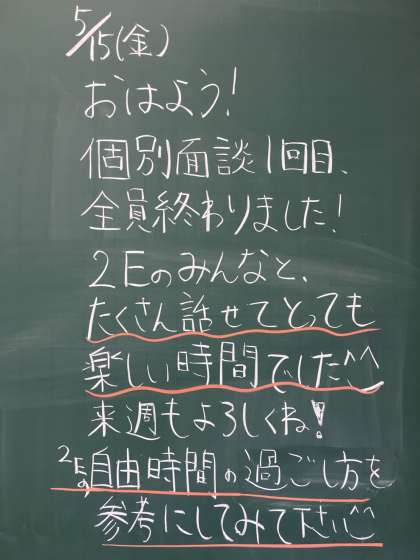 5/15(金)
おはよう!
個別面談1回目、
全員終わりました!
2Eのみんなと、
たくさん話せてとっても
楽しい時間でした^^
来週もよろしくね!
2Eの自由時間の過ごし方を
参考にしてみて下さい^^